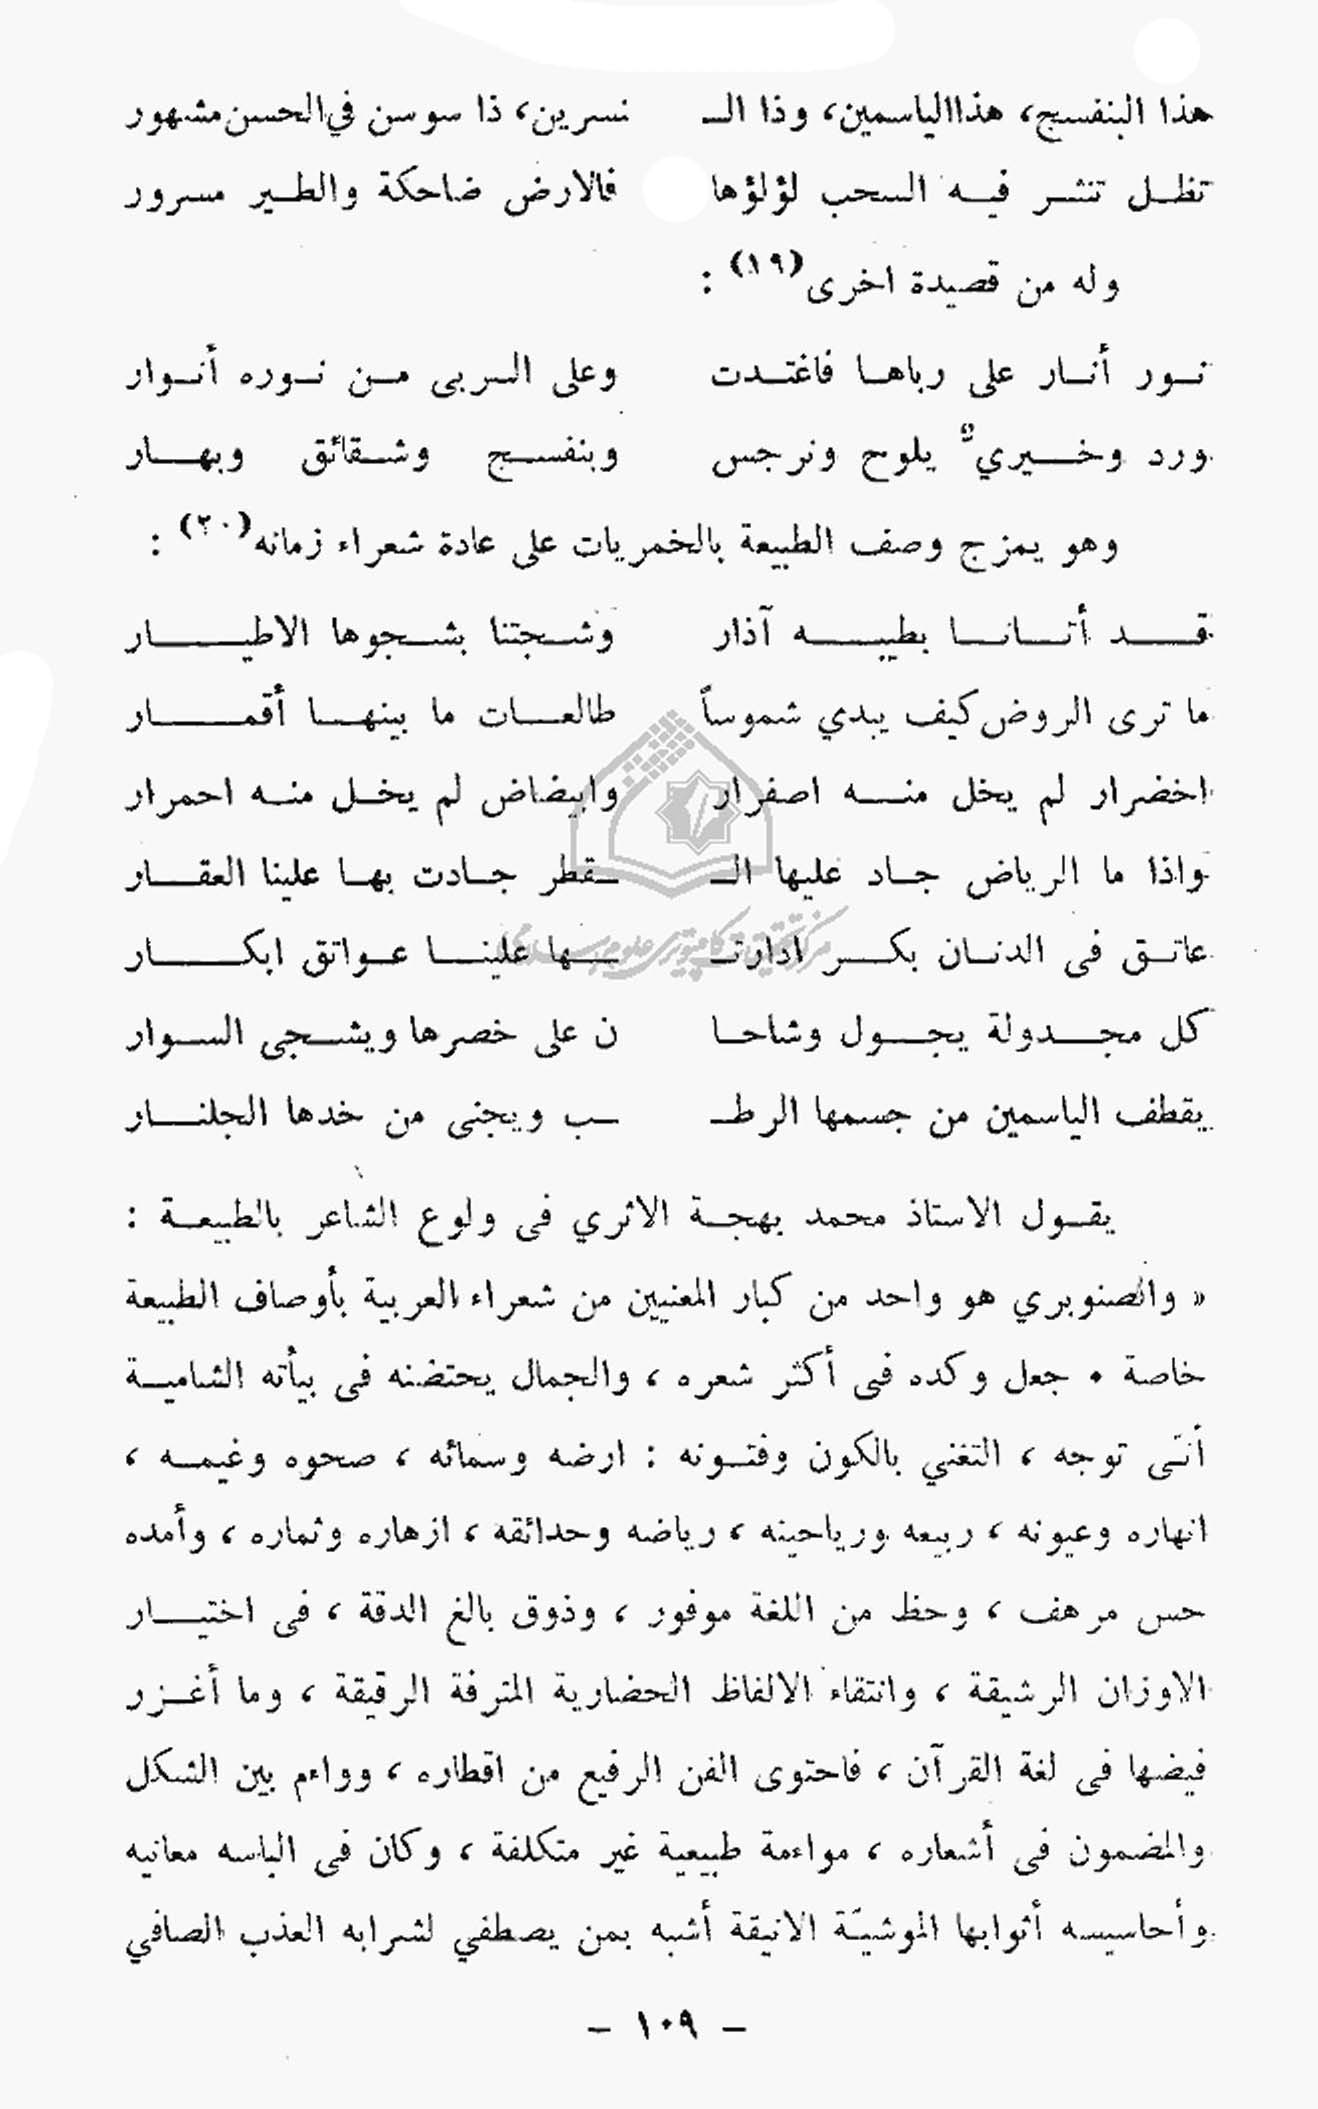 هذا البنفسج، هذا الياسمين، وذا الـ نسرين، ذا سوسن في الحسن مشهور
تظل تنثر فيه السحب لؤلؤها فالارض ضاحكة والطير مسرور
وله من قصيدة اخرى (١٩) :
نور أنار على رباها فاغتدت وعلى الربى من نوره أنوار
ورد وخيريٌّ يلوح ونرجس وبنفسج وشقائق وبهار
وهو يمزج وصف الطبيعة بالخمريات على عادة شعراء زمانه (٢٠) :
قد أتانا بطيبه آذار وشجتنا بشجوها الاطيار
ما ترى الروض كيف يبدي شموساً طالعات ما بينها أقمار
اخضرار لم يخل منه اصفرار وابيضاض لم يخل منه احمرار
واذا ما الرياض جاد عليها الـ ـقطر جادت بها علينا العقار
عاتق في الدنان بكر ادارتـ ـها علينا عواتق ابكار
كل مجدولة يجول وشاحا ن على خصرها ويشجى السوار
يقطف الياسمين من جسمها الرطـ ـب ويجنى من خدها الجلنار
يقول الاستاذ محمد بهجة الاثري في ولوع الشاعر بالطبيعة :
« والصنوبري هو واحد من كبار المعنيين من شعراء العربية بأوصاف الطبيعة
خاصة . جعل وكده في أكثر شعره ، والجمال يحتضنه في بيأته الشامية
أنّى توجه ، التغني بالكون وفتونه : ارضه وسمائه ، صحوه وغيمه ،
انهاره وعيونه ، ربيعه ورياحينه ، رياضه وحدائقه ، ازهاره وثماره ، وأمده
حس مرهف ، وحظ من اللغة موفور ، وذوق بالغ الدقة ، في اختيار
الاوزان الرشيقة ، وانتقاء الالفاظ الحضارية المترفة الرقيقة ، وما أغزر
فيضها في لغة القرآن ، فاحتوى الفن الرفيع من اقطاره ، وواءم بين الشكل
والمضمون في أشعاره ، مواءمة طبيعية غير متكلفة ، وكان في الباسه معانيه
وأحاسيسه أثوابها الموشيّة الانيقة أشبه بمن يصطفي لشرابه العذب الصافي
- ١٠٩ -
مركز تحقيقات كامپيوتري علوم اسلامي